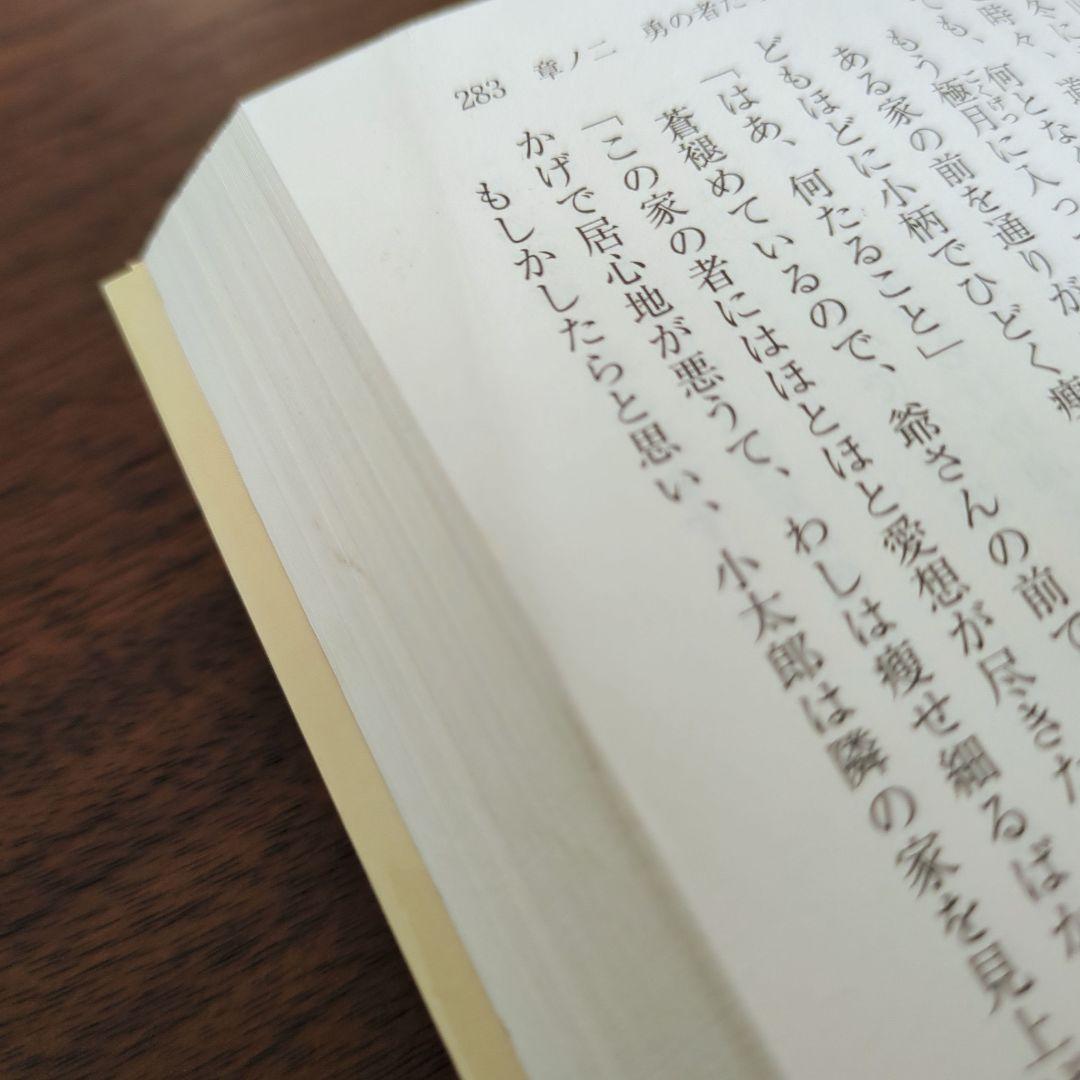 283 章ノ二 勇の者た
もう極月に入っ
ある家の前を通りが
どもほどに小柄でひどく痩
「はあ、何たること」
蒼褪めているので、爺さんの前で
「この家の者にはほとほと愛想が尽きた
かげで居心地が悪うて、わしは痩せ細るばか
もしかしたらと思い、小太郎は隣の家を見上